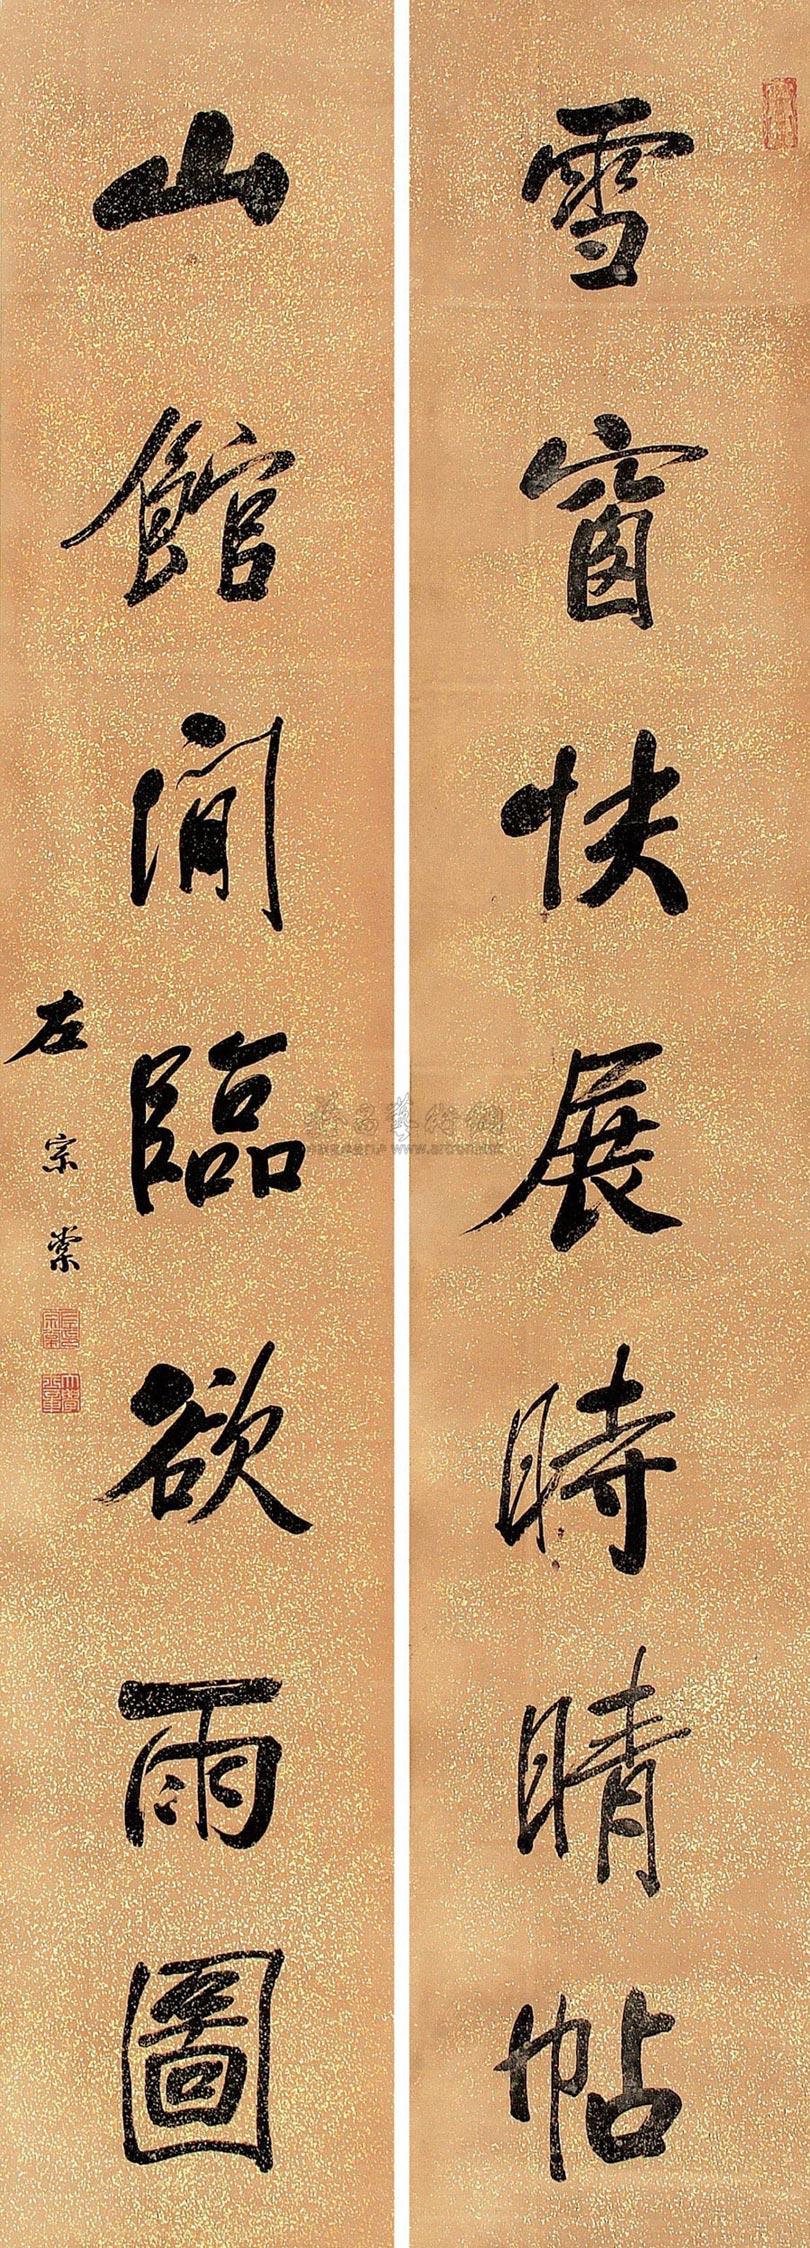 雪窗快展時晴帖
山館閒臨欲雨圖
左宗棠